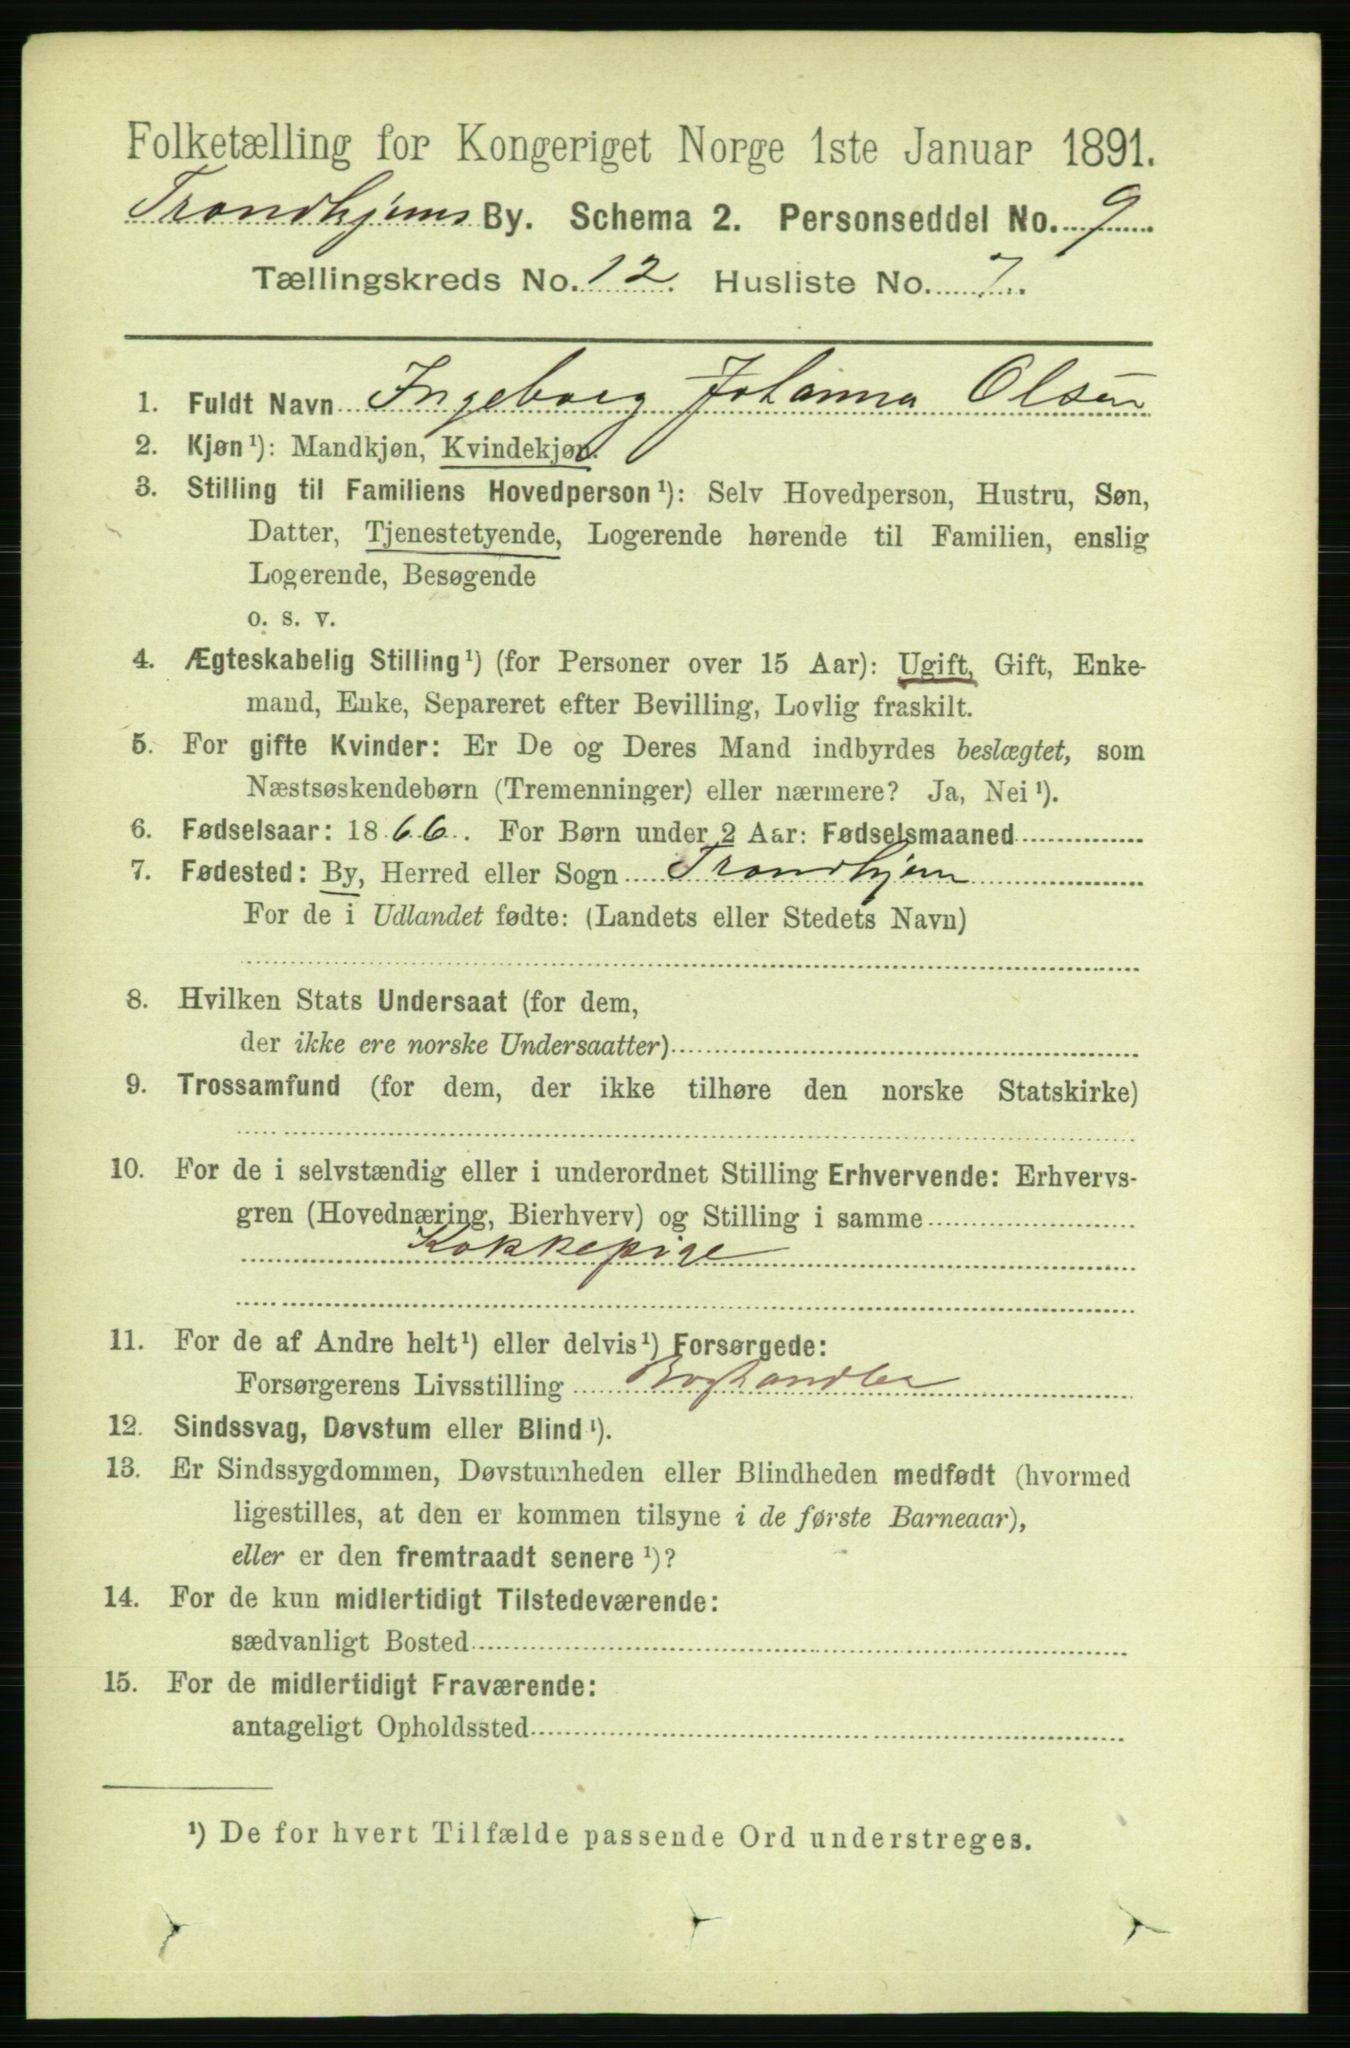 Folketælling for Kongeriget Norge 1ste Januar 1891.
Trondhjems By. Schema 2. Personseddel No. 9
Tællingskreds No. 12. Husliste No. 7.
1. Fuldt Navn Ingeborg Johanna Olsen
2. Kjøn¹): Mandkjøn, Kvindekjøn.
3. Stilling til Familiens Hovedperson¹): Selv Hovedperson, Hustru, Søn,
Datter, Tjenestetyende, Logerende hørende til Familien, enslig
Logerende, Besøgende
o. s. v.
4. Ægteskabelig Stilling¹) (for Personer over 15 Aar): Ugift, Gift, Enke-
mand, Enke, Separeret efter Bevilling, Lovlig fraskilt.
5. For gifte Kvinder: Er De og Deres Mand indbyrdes beslægtet, som
Næstsøskendebørn (Tremenninger) eller nærmere? Ja, Nei¹).
6. Fødselsaar: 1866. For Børn under 2 Aar: Fødselsmaaned
7. Fødested: By, Herred eller Sogn Trondhjem
For de i Udlandet fødte: (Landets eller Stedets Navn)
8. Hvilken Stats Undersaat (for dem,
der ikke ere norske Undersaatter)
9. Trossamfund (for dem, der ikke tilhøre den norske Statskirke)
10. For de i selvstændig eller i underordnet Stilling Erhvervende: Erhvervs-
gren (Hovednæring, Bierhverv) og Stilling i samme
Kokkepige
11. For de af Andre helt¹) eller delvis¹) Forsørgede:
Forsørgerens Livsstilling Boghandler
12. Sindssvag, Døvstum eller Blind¹).
13. Er Sindssygdommen, Døvstumheden eller Blindheden medfødt (hvormed
ligestilles, at den er kommen tilsyne i de første Barneaar),
eller er den fremtraadt senere¹)?
14. For de kun midlertidigt Tilstedeværende:
sædvanligt Bosted
15. For de midlertidigt Fraværende:
antageligt Opholdssted
¹) De for hvert Tilfælde passende Ord understreges.